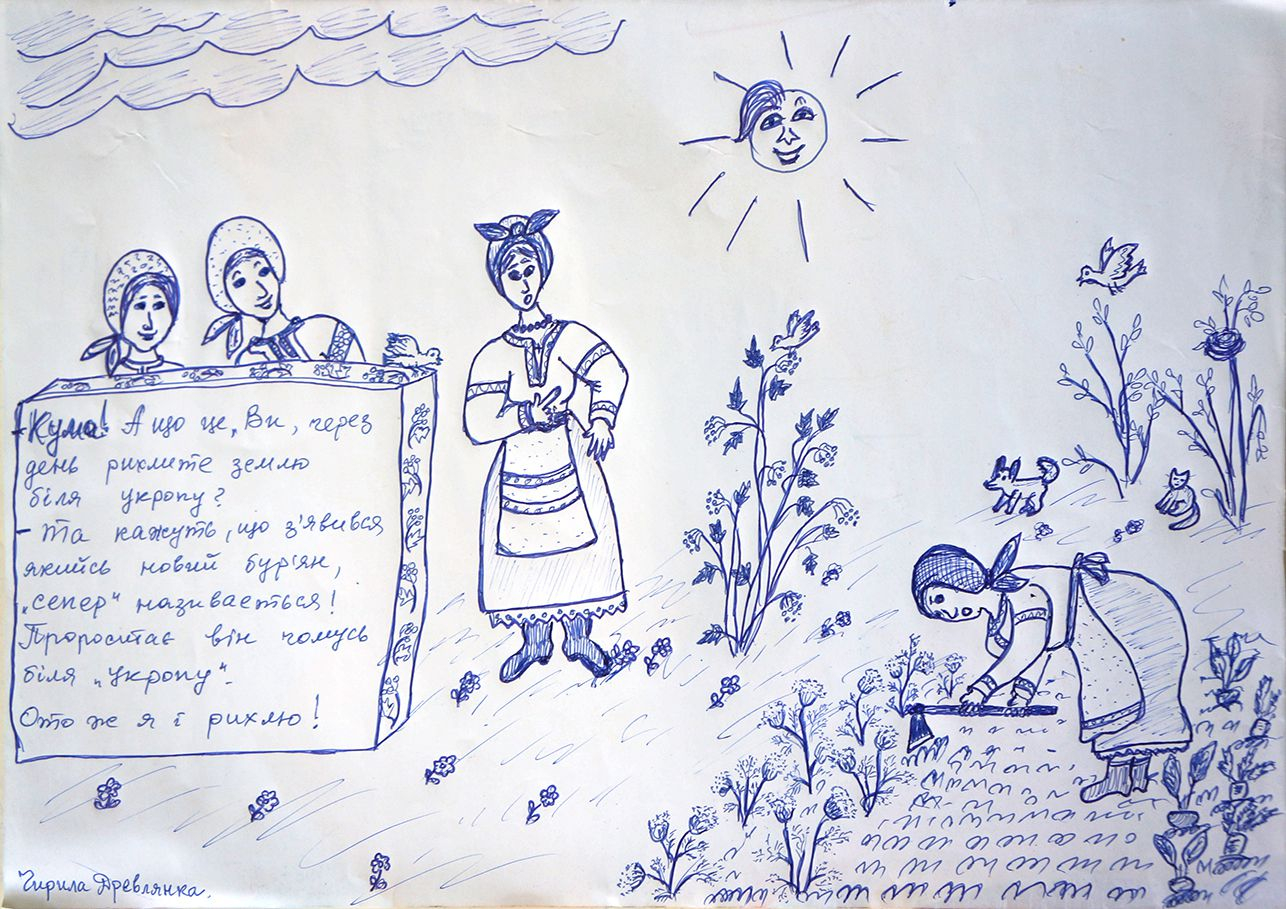 - Кума! А що це, Ви, через
день рихлите землю
біля укропу?
- Та кажуть, що з'явився
якийсь новий бур'ян,
„сепер" називається!
Проростає він чомусь
біля „Укропу".
Ото ж я і рихлю!
Чирила Древлянка.